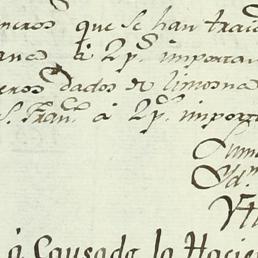 neros que se han traid
anes à 2 p.s importan
eros dados de limosna
S. Fran.co à 2 p.s import
Suma
Yd.m
à Causado la Hacien